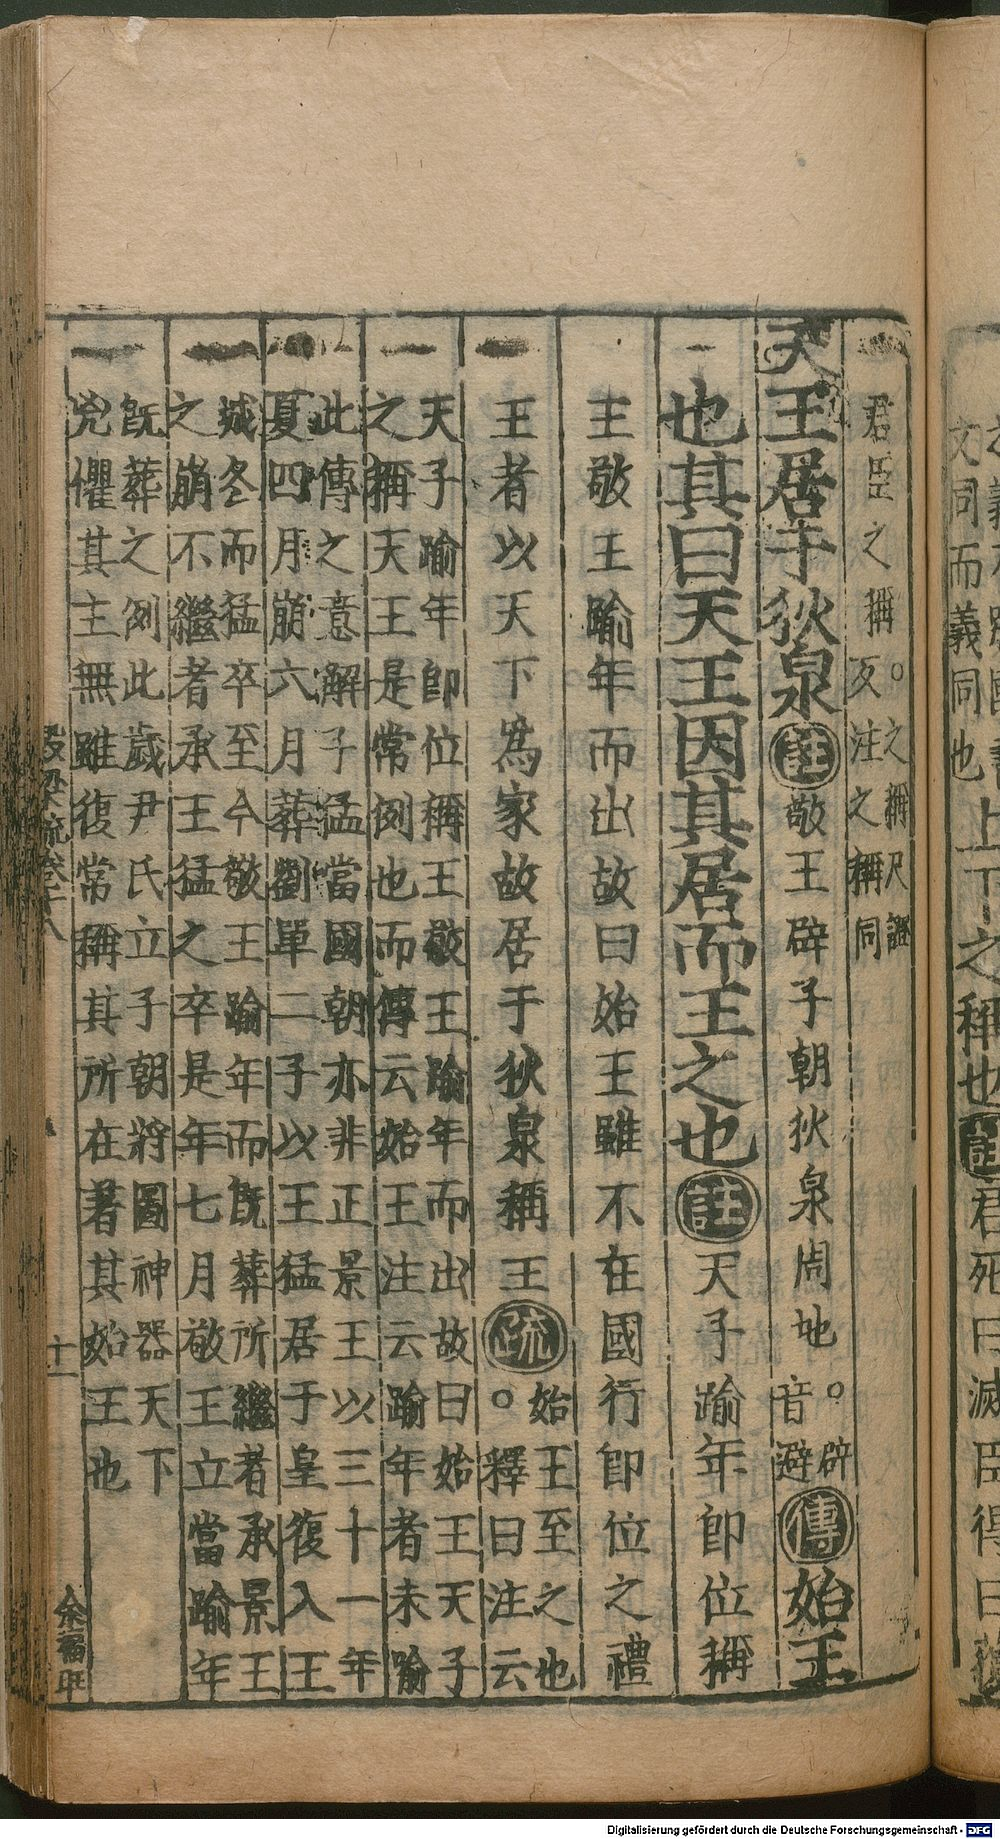 文同而義同也
上下之稱也註君死曰滅臣得曰獲
君臣之稱。之稱尺證
反注之稱同
天王居于狄泉註敬王辟子朝狄泉周地。辟
音避傳始王
也其曰天王因其居而王之也註天子踰年即位稱
王敬王踰年而出故曰始王雖不在國行即位之禮
王者以天下為家故居于狄泉稱王疏始王至之也
。釋曰注云
天子踰年即位稱王敬王踰年而出故曰始王天子
之稱天王是常例也而傳云始王注云踰年者未踰
此傳之意解子猛當國朝亦非正景王以三十一年
夏四月崩六月葬劉單二子以王猛居于皇復入王
城冬而猛卒至今敬王踰年而既葬所繼者承景王
之崩不繼者承王猛之卒是年七月敬王立當踰年
既葬之例此歲尹氏立子朝將圖神器天下
兇懼其主無雖復常稱其所在著其始王也
穀梁疏卷十八
十一
余福旺
Digitalisierung gefördert durch die Deutsche Forschungsgemeinschaft - DFG